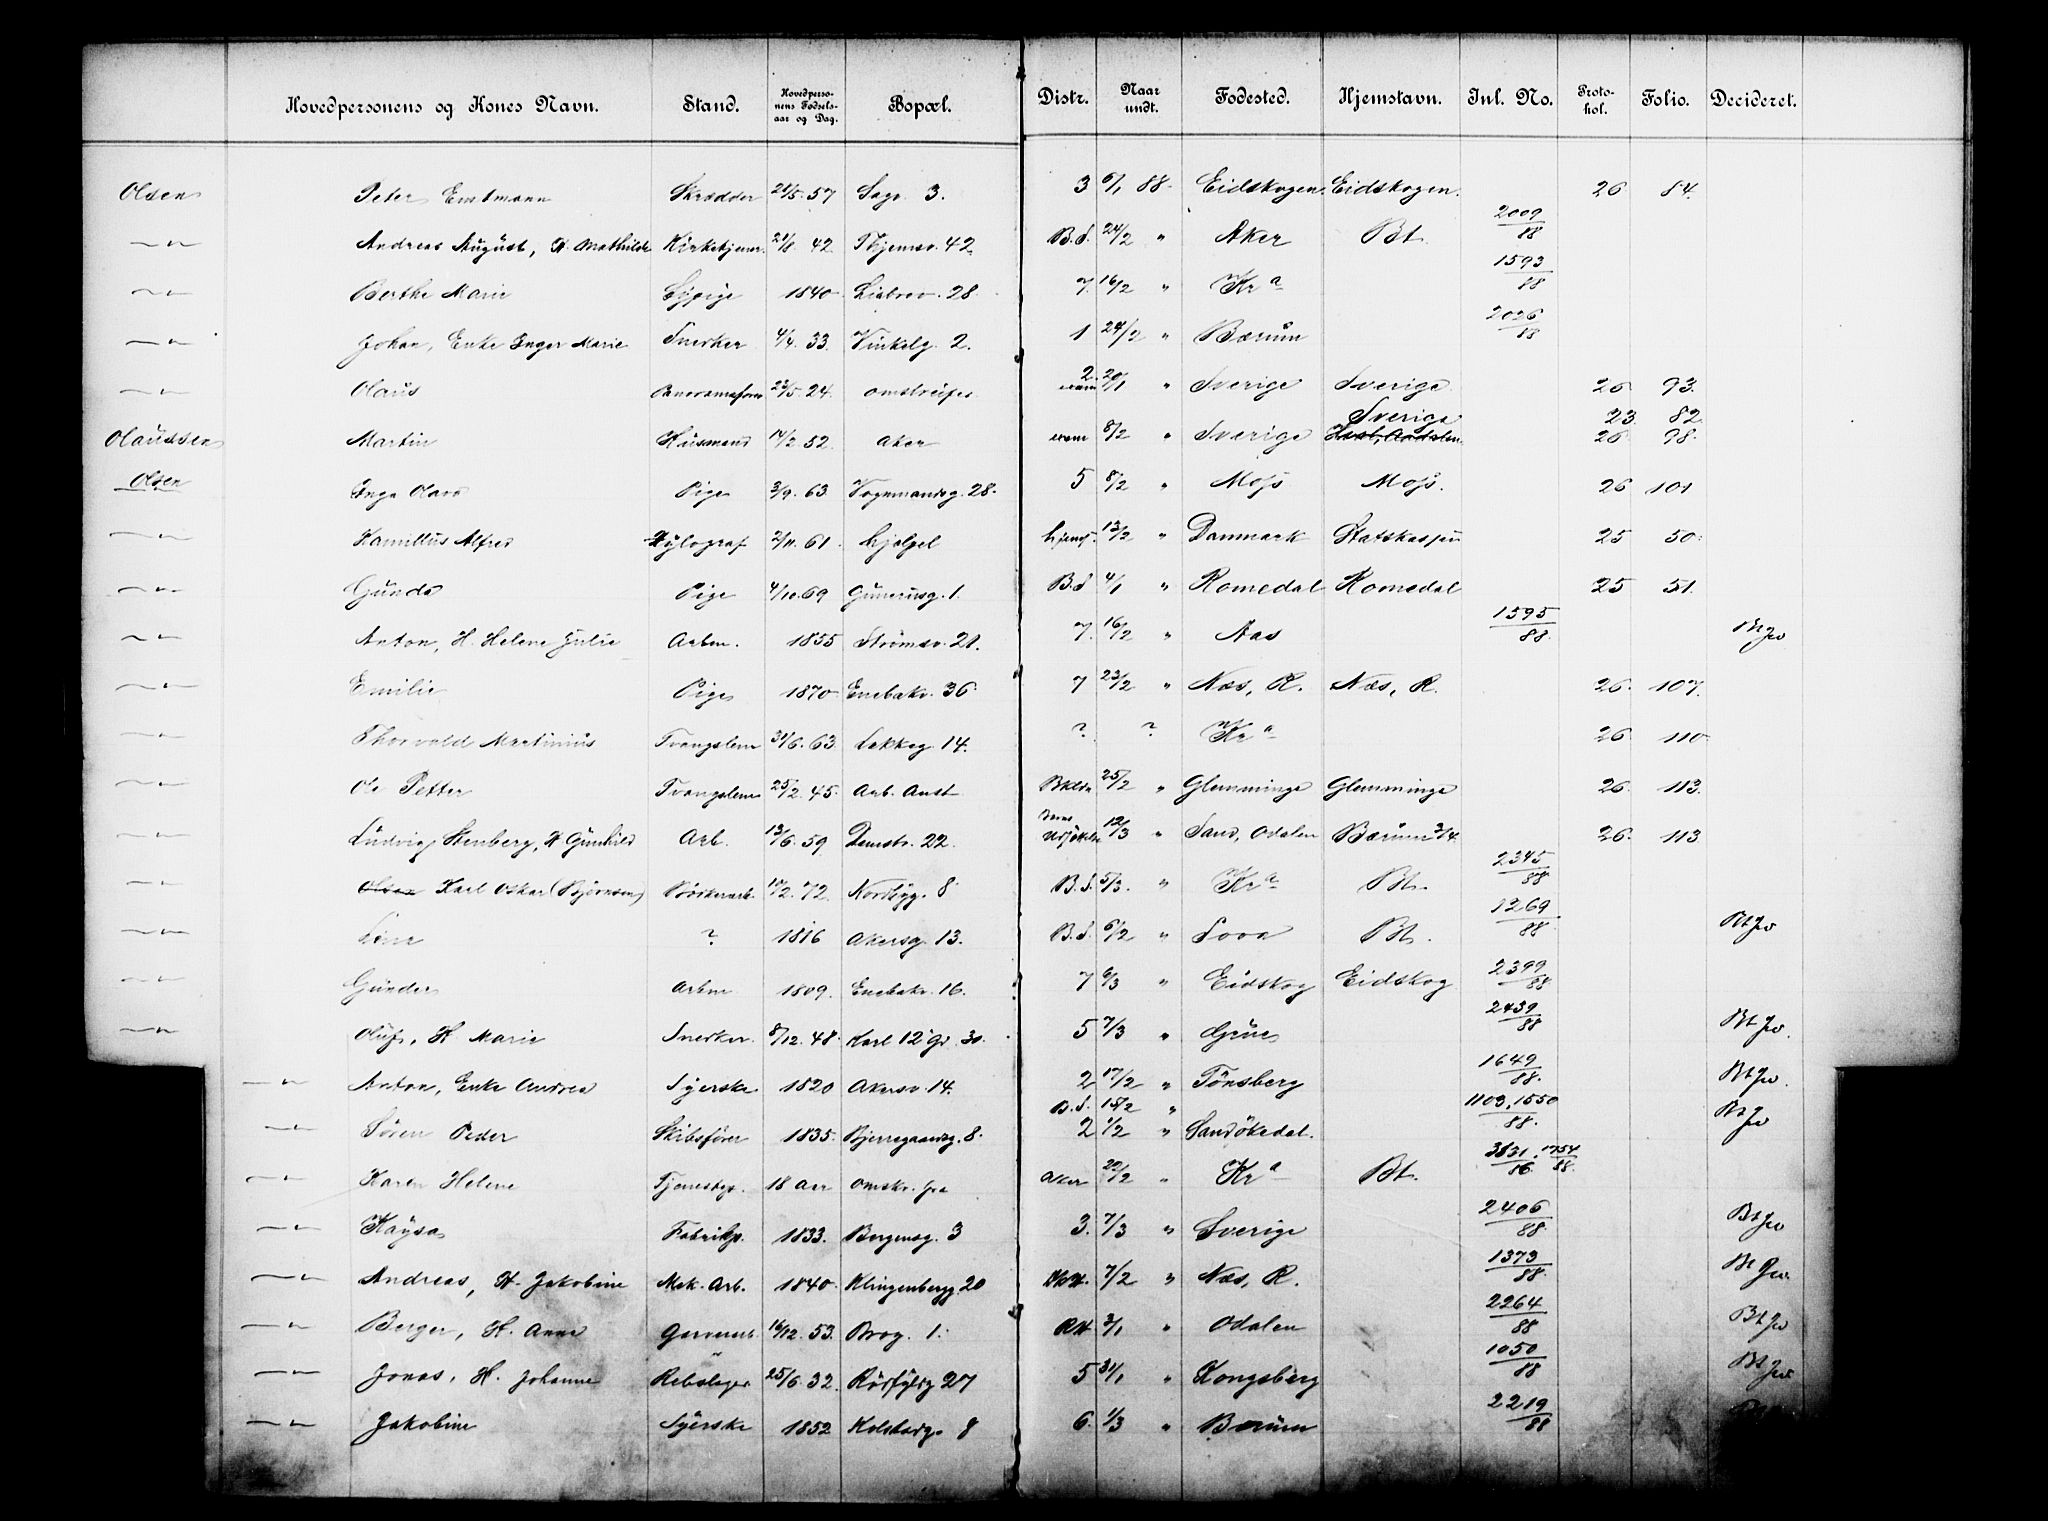 Hovedpersonens og Kones Navn. Stand. Hovedpersonens Fødselsaar og Dag. Bopæl. Distr. Naar undt. Fødested. Hjemstavn. Inl. No. Protokol. Folio. Decideret.
Olsen Peter Skrædder 21/5 57 Sagv. 3. 3 6/1 88 Eidskogen. Eidskogen. 26 84.
—"— Andreas August, H. Mathilde 21/8 42. 42 B.S. 24/2 " Aker Bt. 2009/88
—"— Berthe Marie 1840 28. 7. 16/2 " Kra 1593/88
—"— Johan, Enke Inger Marie Snedker 4/4. 33. Vinkelg. 2. 1 24/2 " Bærum 2026/88
—"— Olaus 23/5. 24. omstreifer 2. 20/1 " Sverige Sverige 26 93.
Olaussen Martin Husmand 14/2 52. Aker 8/2 " Sverige Sverige 23 82 26 98.
Olsen Inga Pige 3/9. 63. Vognmandsg. 28. 5 8/2 " Moss Moss. 26 101
—"— Kamillus Alfred Xylograf 2/11. 61. hjelpel hjemf. 13/2 " Danmark Statskassen 25 50.
—"— Gunda Pige 4/10. 69 Gunerusg. 1. B.S 4/1 " Romedal Romedal 25 51.
—"— Anton, H. Helene Julie Arbm. 1855 Strømsv. 21. 7. 16/2 " Aas 1595/88. Bt Jo
—"— Emilie Pige 1870 Enebakv. 36 7 23/2 " Næs, R. Næs, R. 26. 107.
—"— Thorvald Martinius Tvangslem 31/6. 63. Løkkeg. 14. ? ? Kra 26. 110
—"— Ole Petter Tvangslem 25/2. 45. Arb. Anst 25/2 " Glemminge Glemminge 26. 113.
—"— Ludvig Stenberg, H. Gunhild Arb. 13/6. 59. Damstr. 22. 12/3 " Sand, Odalen Bærum 3/4. 26. 113
—"— Karl Oskar (Bjørnsen) 10/2. 72. Nordbyg. 8 B.S. 5/3. " Kra Bt. 2345/88
—"— Line ? 1816 Akersg. 13. B.S. 6/2 " Bt. 1269/88. Bt Jo
—"— Gunder Arbm 1809. Enebakv. 16. 7 6/3 " Eidskog Eidskog 2399/88
—"— Oluf, H. Marie Snedker. 8/12. 48. Karl 12 Gd. 30. 5 7/3 " Grue 2439/88 Bt Jo.
—"— Anton, Enke Andrea Syerske 1820 Akersv. 14. 2 17/2 " Tønsberg 1649/88. Bt Jo.
—"— Søren Peder Skibsfører 1835. Bjerregaardsg. 8. B.S. 15/2 " 2 1/2 " Sandøkedal. 1103, 1550/88. Bt Jo
—"— Karen Helene Tjenestep. 18 Aar omskr. fra Aker 22/2 " Kra Bt. 3831/86. 1754/88.
—"— Kaysa Fabrikp. 1833. Bergensg. 3 3. 7/3 " Sverige 2406/88. Bt Jo
—"— Andreas, H. Jakobine Mek. Arb. 1840 Klingenbergg. 20 7/2 " Næs, R. 1373/88. Bt Jo.
—"— Berger, H. Anna Garverarb. 16/12. 53. Brog. 1. 3/1 " Odalen 2264/88 Bt Jo
—"— Jonas, H. Johanne Rebslager 25/6. 32. Rødfyldg 27 5 31/1 " Kongsberg 1050/88 Bt Jo
—"— Jakobine Syerske 1852 8 6. 1/3 " Bærum 2219/88